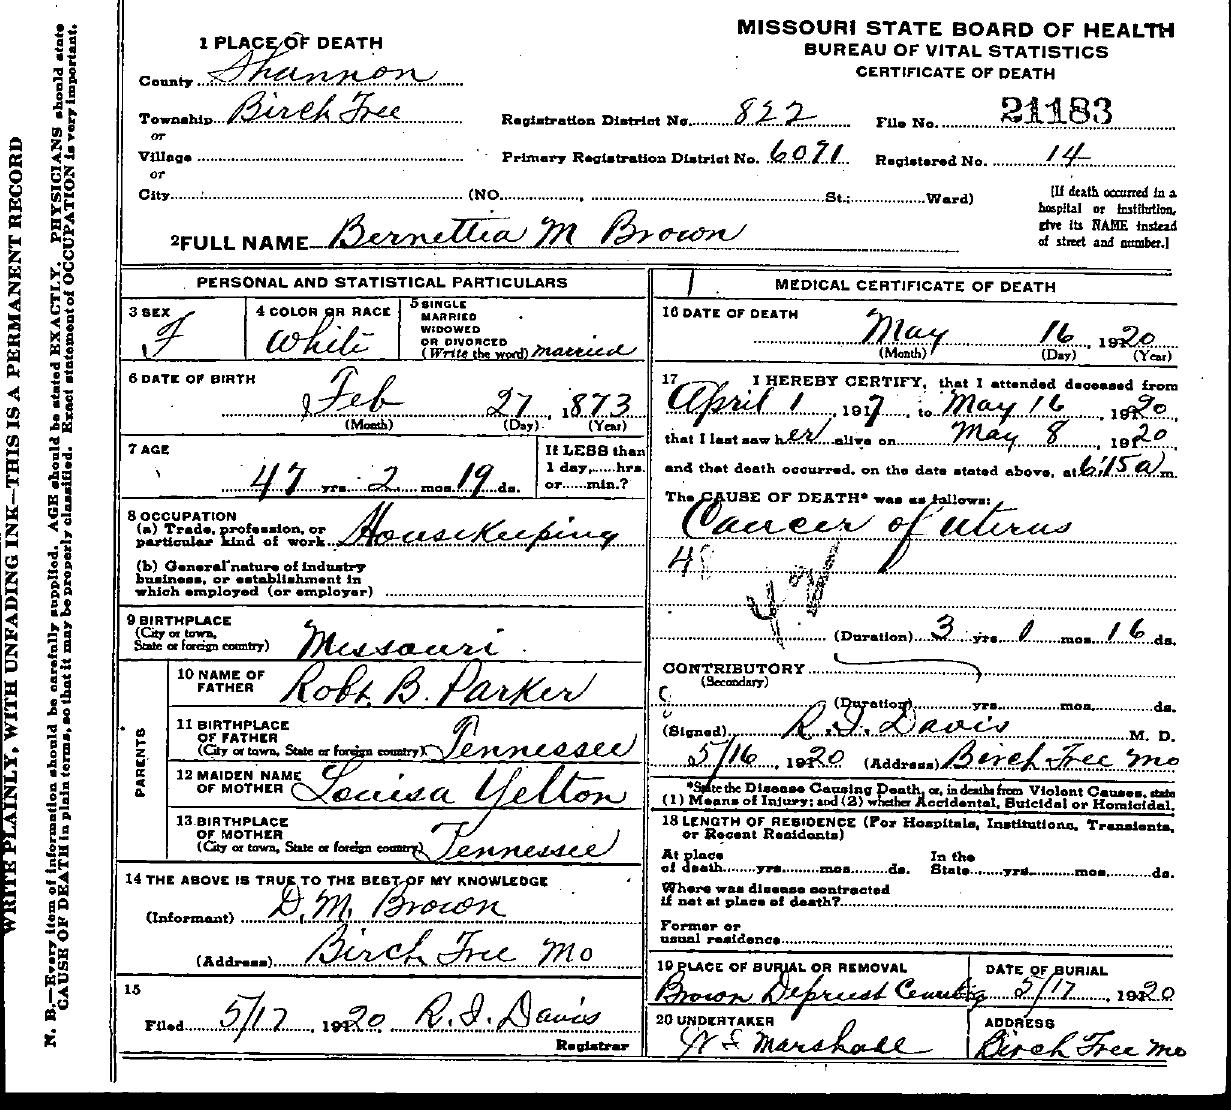 MISSOURI STATE BOARD OF HEALTH
BUREAU OF VITAL STATISTICS
CERTIFICATE OF DEATH
1 PLACE OF DEATH
County Shannon
Township Birch Tree
or
Village
or
City (NO. St.; Ward)
Registration District No. 822 File No. 21183
Primary Registration District No. 6071 Registered No. 14
[If death occurred in a
hospital or institution,
give its NAME instead
of street and number.]
2 FULL NAME Bernettia M Brown
PERSONAL AND STATISTICAL PARTICULARS
3 SEX F
4 COLOR OR RACE White
5 SINGLE
MARRIED
WIDOWED
OR DIVORCED
(Write the word) married
6 DATE OF BIRTH
Feb 27, 1873
(Month) (Day) (Year)
7 AGE
47 yrs. 2 mos. 19 ds.
If LESS than
1 day,......hrs.
or......min.?
8 OCCUPATION
(a) Trade, profession, or
particular kind of work Housekeeping
(b) General nature of industry
business, or establishment in
which employed (or employer)
9 BIRTHPLACE
(City or town,
State or foreign country) Missouri
PARENTS
10 NAME OF
FATHER Robt. B. Parker
11 BIRTHPLACE
OF FATHER
(City or town, State or foreign country) Tennessee
12 MAIDEN NAME
OF MOTHER Louisa Yelton
13 BIRTHPLACE
OF MOTHER
(City or town, State or foreign country) Tennessee
14 THE ABOVE IS TRUE TO THE BEST OF MY KNOWLEDGE
(Informant) D. M. Brown
(Address) Birch Tree Mo
15
Filed 5/17, 1920 R. I. Davis
Registrar
MEDICAL CERTIFICATE OF DEATH
16 DATE OF DEATH
May 16, 1920
(Month) (Day) (Year)
17 I HEREBY CERTIFY, that I attended deceased from
April 1, 1917, to May 16, 1920,
that I last saw her alive on May 8, 1920
and that death occurred, on the date stated above, at 6:15 a m.
The CAUSE OF DEATH* was as follows:
Cancer of uterus
(Duration) 3 yrs. 1 mos. 16 ds.
CONTRIBUTORY
(Secondary)
(Duration) yrs. mos. ds.
(Signed) R. I. Davis M. D.
5/16, 1920 (Address) Birch Tree Mo
*State the Disease Causing Death, or, in deaths from Violent Causes, state
(1) Means of Injury; and (2) whether Accidental, Suicidal or Homicidal.
18 LENGTH OF RESIDENCE (For Hospitals, Institutions, Transients,
or Recent Residents)
At place In the
of death......yrs......mos......ds. State......yrs......mos......ds.
Where was disease contracted
if not at place of death?
Former or
usual residence
19 PLACE OF BURIAL OR REMOVAL
Brown Depriest
DATE OF BURIAL
5/17, 1920
20 UNDERTAKER
Marshall
ADDRESS
Birch Tree Mo
WRITE PLAINLY, WITH UNFADING INK—THIS IS A PERMANENT RECORD
N. B.—Every item of information should be carefully supplied. AGE should be stated EXACTLY. PHYSICIANS should state
CAUSE OF DEATH in plain terms, so that it may be properly classified. Exact statement of OCCUPATION is very important.